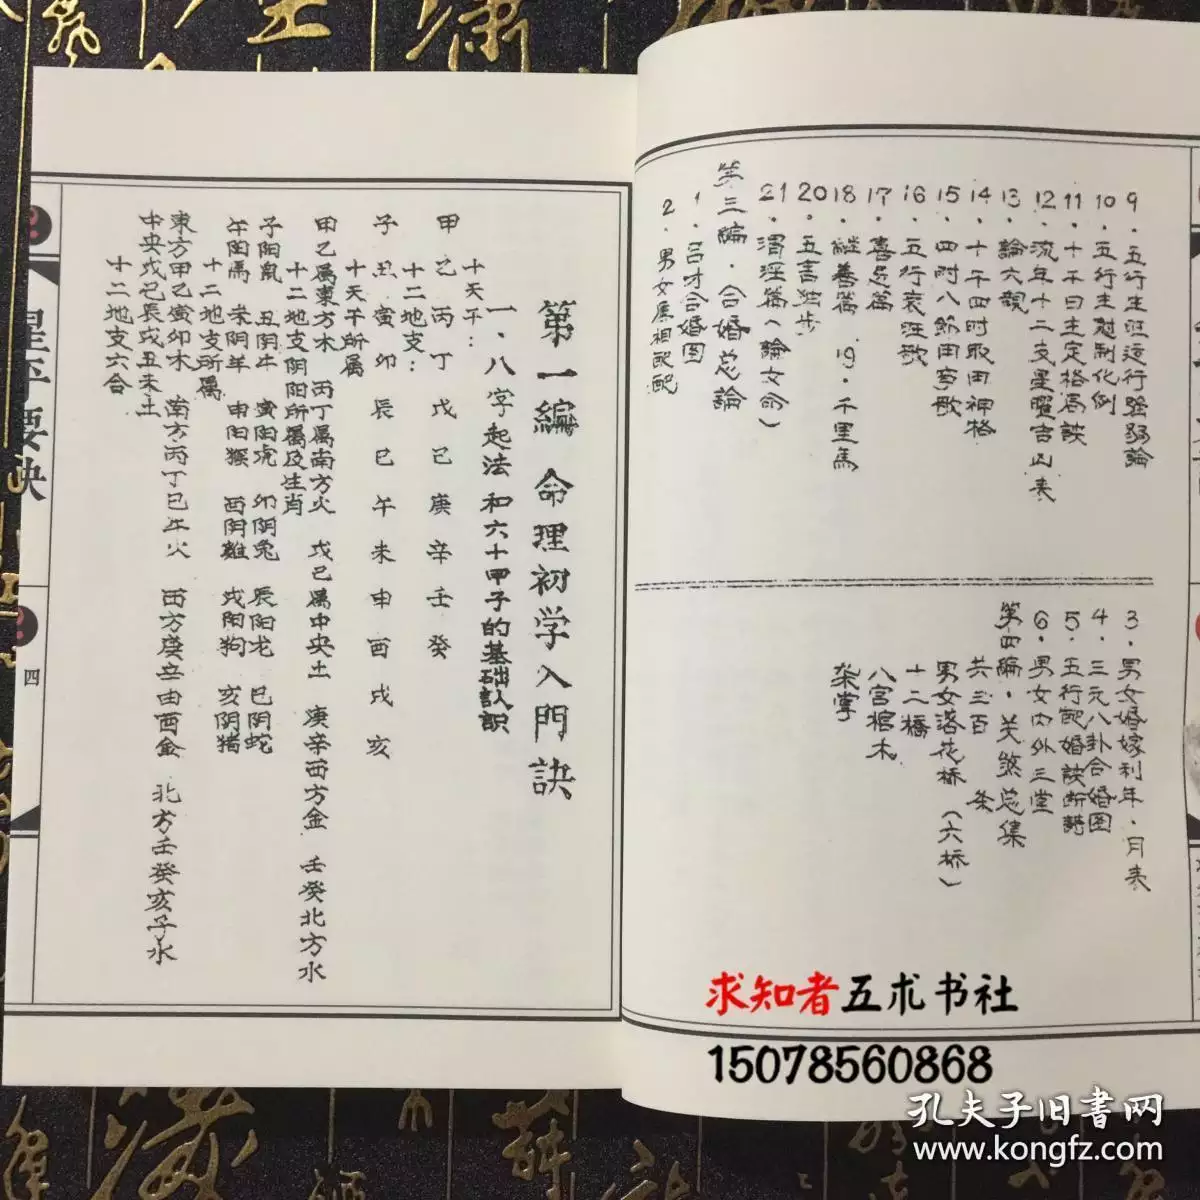 9.五行生旺运行强弱論
10.五行生尅制化例
11.十干日主定格局訣
12.流年十二支星曜吉凶表
13.論六親
14.十干四时取用神格
15.四时八節用事歌
16.五行衰旺歌
17.喜忌篇
18.継善篇 19.千里馬
20.五言独步
21.渭泾篇(論女命)
第三編.合婚总論
1.吕才合婚图
2.男女属相配配
3.男女婚嫁利年.月表
4.三元八卦合婚图
5.五行配婚訣断詩
6.男女内外三堂
第四編.关煞总集
共三百 条
男女落花桥(六桥)
十二橋
八宫棺木
架掌
第一編 命理初学入門訣
一.八字起法和六十甲子的基础認識
十天干:
甲乙丙丁戊己庚辛壬癸
十二地支:
子丑寅卯辰巳午未申酉戌亥
十天干所属
甲乙属東方木 丙丁属南方火 戊己属中央土 庚辛西方金 壬癸北方水
十二地支阴阳所属及生肖
子阳鼠 丑阴牛 寅阳虎 卯阴兔 辰阳龙 巳阴蛇
午阳馬 未阴羊 申阳猴 酉阴雞 戌阳狗 亥阴猪
十二地支所属
東方甲乙寅卯木 南方丙丁巳午火 西方庚辛申酉金 北方壬癸亥子水
中央戊己辰戌丑未土
十二地支六合
星平要诀
四
求知者五术书社
15078560868
孔夫子旧書网
www.kongfz.com